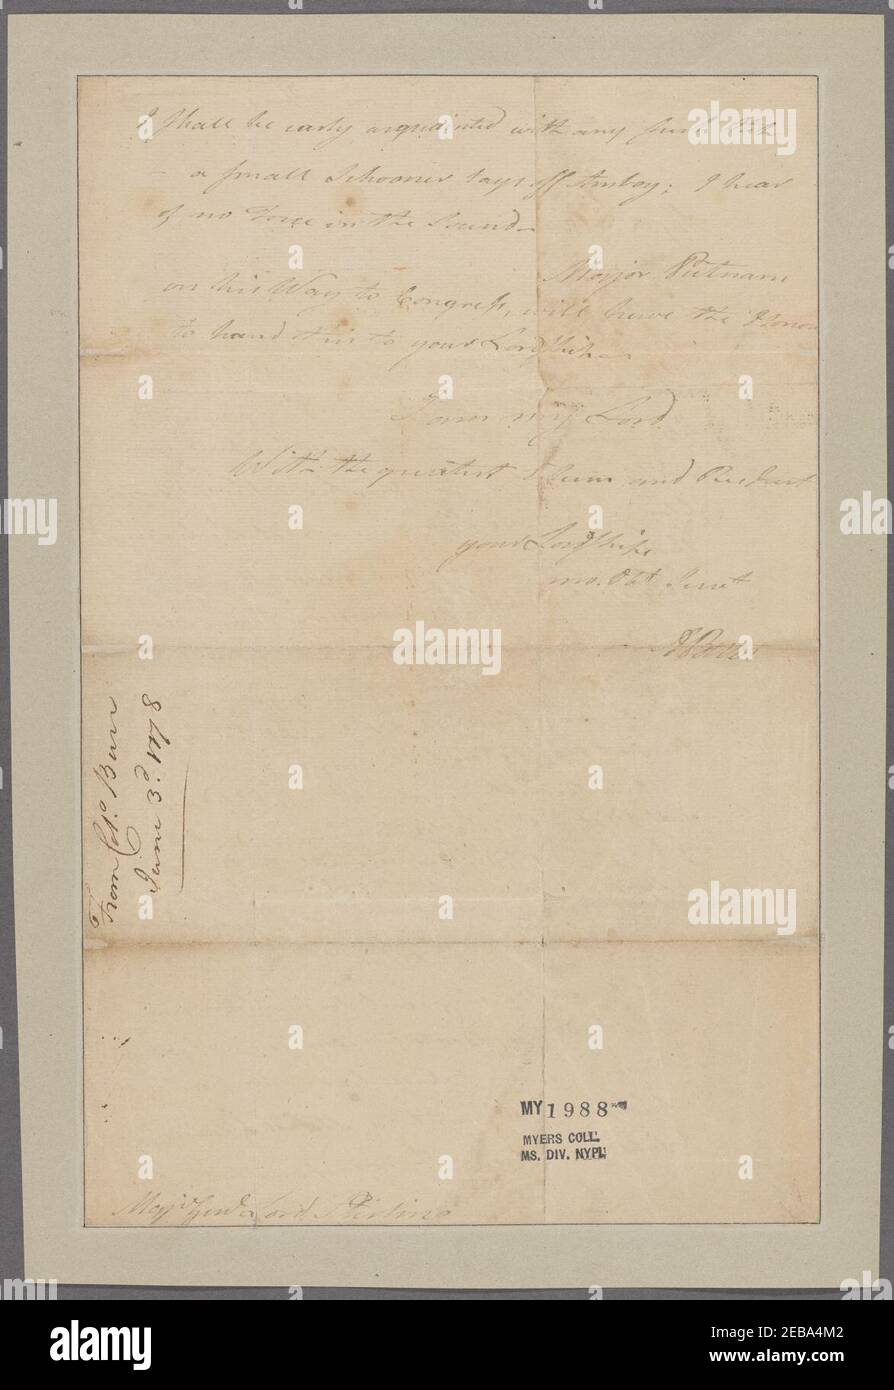 I shall be early acquainted with any
a small Schooner lays off Amboy; I hear
of no Force in the Sound—
Major Putnam
on his Way to Congress, will have the Honou
to hand this to your Lordship—
I am my Lord
With the greatest Esteem and Respect
your Lordships
mo. Obt Servt
A Burr
From Col.º Burr
June 3.d 1778
MY 1988
MYERS COLL.
MS. DIV. NYPL
Majr Genl Lord Stirling
alamy
Image ID: 2EBA4M2
www.alamy.com